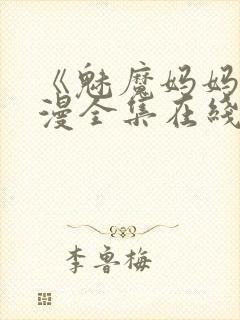 《魅魔妈妈
漫全集在线
李鲁梅